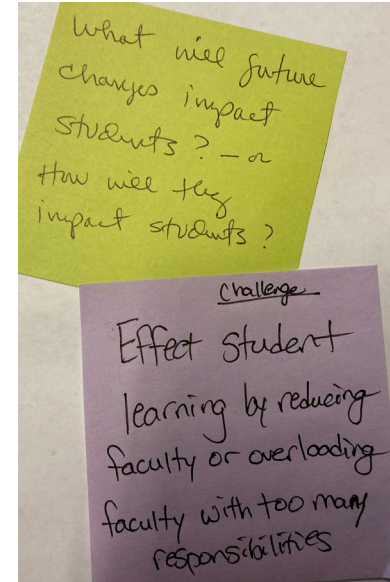 What will future
changes impact
students? – or
How will they
impact students?
Challenge
Effect student
learning by reducing
faculty or overloading
faculty with too many
responsibilities